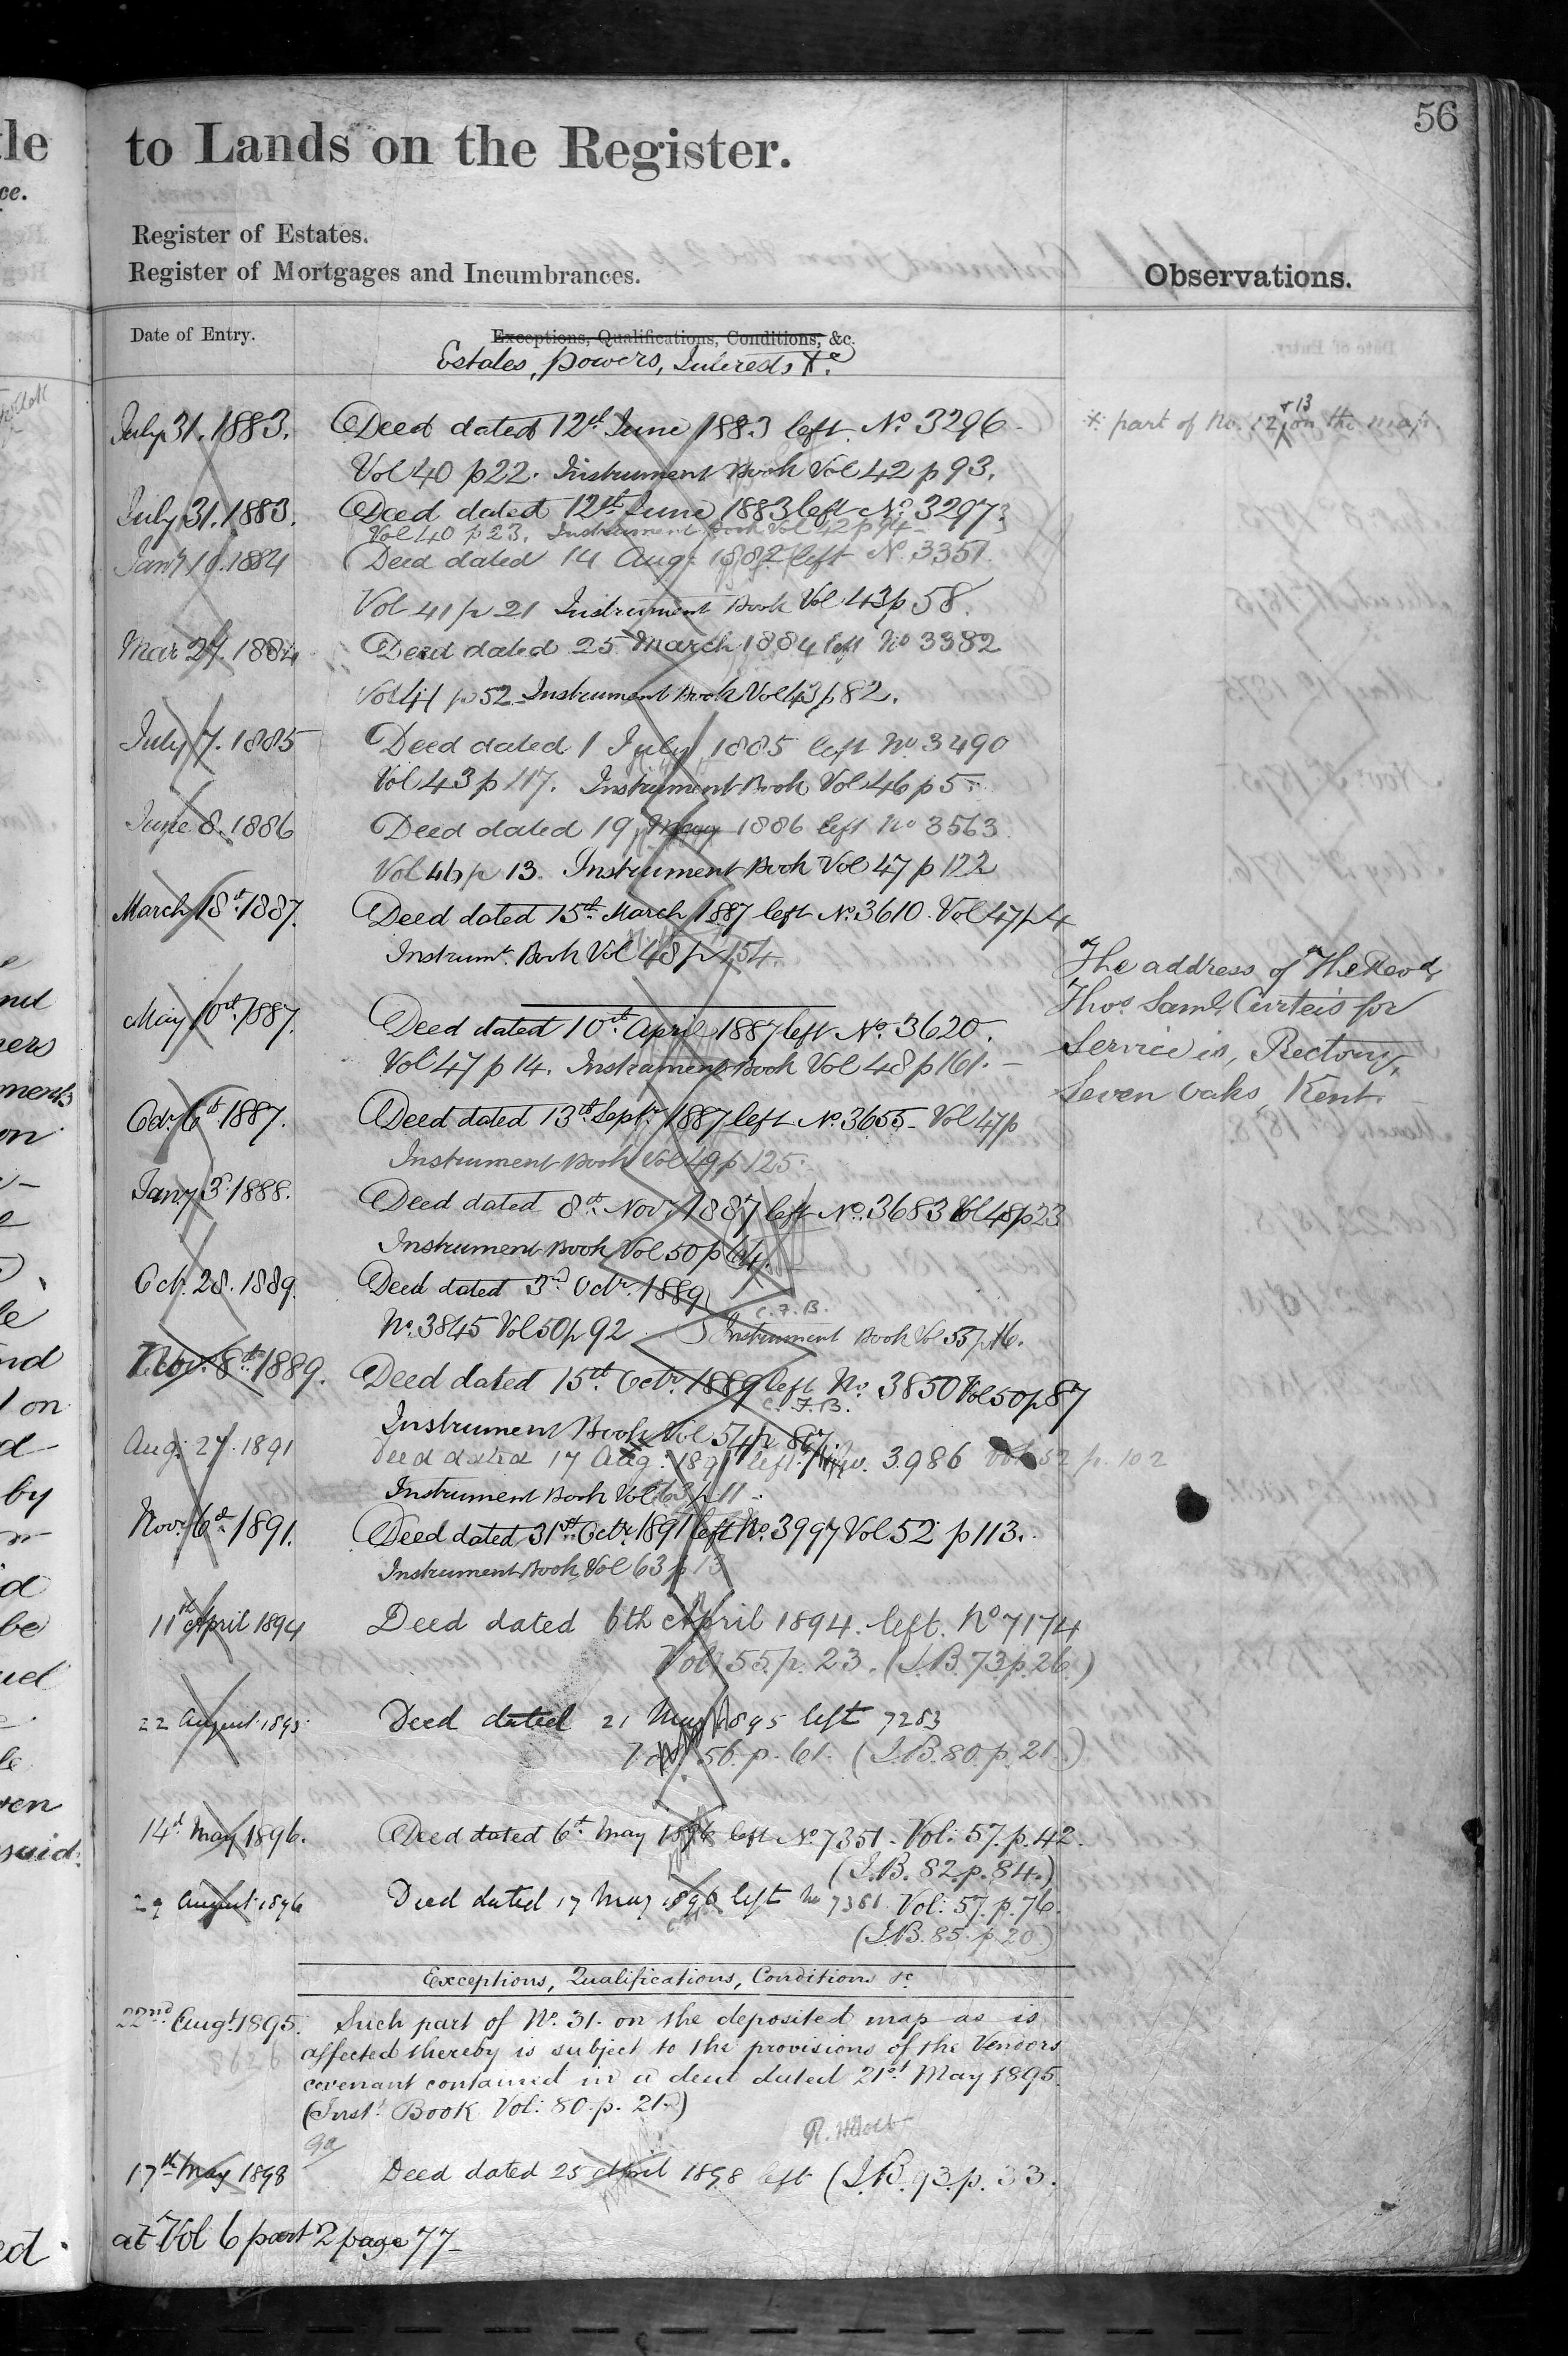 56
to Lands on the Register.
Register of Estates.
Register of Mortgages and Incumbrances.
Observations.
Date of Entry.
Exceptions, Qualifications, Conditions, &c.
Estates, powers, Interests &c.
July 31. 1883. Deed dated 12th June 1883 left No. 3296
* part of No. 12 & 13 on the map.
Vol 40 p 22. Instrument Book Vol 42 p 93.
July 31. 1883. Deed dated 12th June 1883 left No. 3297
Vol 40 p 23. Instrument Book Vol 42 p 94
Jany 10. 1884 Deed dated 14 Aug: 1882 left No. 3351.
Vol 41 p 21 Instrument Book Vol 43 p 58.
Mar 27. 1884 Deed dated 25 March 1884 left No 3382
Vol 41 p 52 Instrument Book Vol 43 p 82.
July 7. 1885 Deed dated 1 July 1885 left No. 3490
Vol 43 p 117. Instrument Book Vol 46 p 5
June 8. 1886 Deed dated 19 May 1886 left No 3563
Vol 46 p 13. Instrument Book Vol 47 p 122
March 18th 1887. Deed dated 15th March 1887 left No. 3610. Vol 47 p 4
Instrumt. Book Vol 48 p 154.
The address of The Revd
Thos. Saml. Curteis for
Service is, Rectory,
Seven Oaks, Kent.
May 10th 1887. Deed dated 10th April 1887 left No. 3620.
Vol 47 p 14. Instrument Book Vol 48 p 161.
Octr. 6th 1887. Deed dated 13th Septr. 1887 left No. 3655 Vol 47 p
Instrument Book Vol 49 p 125.
Jany 3d. 1888. Deed dated 8th Novr. 1887 left No. 3683 Vol 48 p 23
Instrument Book Vol 50 p 64.
Oct. 28. 1889. Deed dated 3rd Octr. 1889
C.F.B.
No. 3845 Vol 50 p 92 Instrument Book Vol 55 p 16.
Novr. 8th 1889. Deed dated 15th Octr. 1889 left No. 3850 Vol 50 p 87
C.F.B.
Instrument Book Vol 54 p 87
Aug: 27. 1891 Deed dated 17 Aug: 1891 left No. 3986 Vol 52 p. 102
Instrument Book Vol 63 p 11
Novr. 6th 1891. Deed dated 31st Octr. 1891 left No. 3997 Vol 52 p 113.
Instrument Book Vol 63 p 13
11th April 1894 Deed dated 6th April 1894. left. No 7174
Vol 55. p. 23. (I.B. 73 p. 26.)
22 August 1895 Deed dated 21 May 1895 left 7283
Vol 56. p. 61. (I.B. 80. p. 21.)
14th May 1896. Deed dated 6th May 1896 left No. 7351. Vol: 57. p. 42.
(I.B. 82. p. 84.)
29 August 1896 Deed dated 17 May 1896 left No 7381 Vol: 57. p. 76.
(I.B. 85. p. 20)
Exceptions, Qualifications, Conditions &c
22nd Augt. 1895. Such part of No. 31. on the deposited map as is
affected thereby is subject to the provisions of the Vendors
covenant contained in a deed dated 21st May 1895.
(Inst. Book Vol: 80. p. 21.)
17th May 1898 Deed dated 25 April 1898 left (I.B. 93. p. 33.
at Vol 6 part 2 page 77